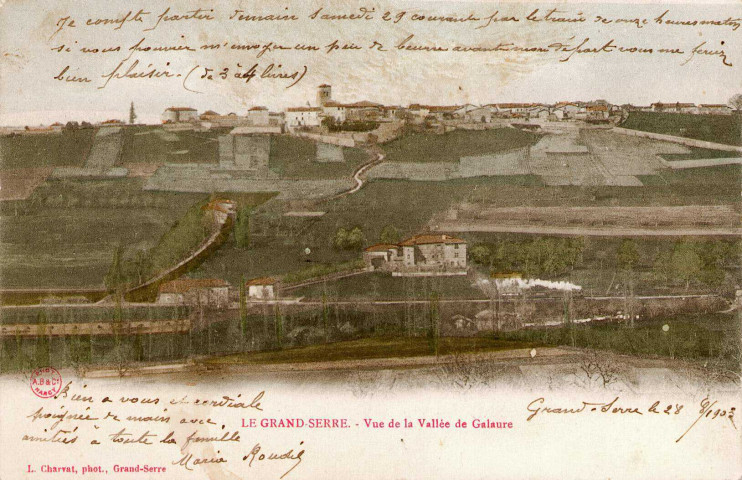 Je compte partir demain Samedi 29 courant par le train de onze heures matin
si vous pouvier m'envoyer un peu de beurre avant mon départ vous me feriez
bien plaisir. (de 3 à 4 livres)
Bien a vous et cordiale
poignée de main avec
amitiés à toute la famille
Maria
Grand-Serre le 28
LE GRAND-SERRE. - Vue de la Vallée de Galaure
L. Charvat, phot., Grand-Serre
A.B & Cie
NANCY